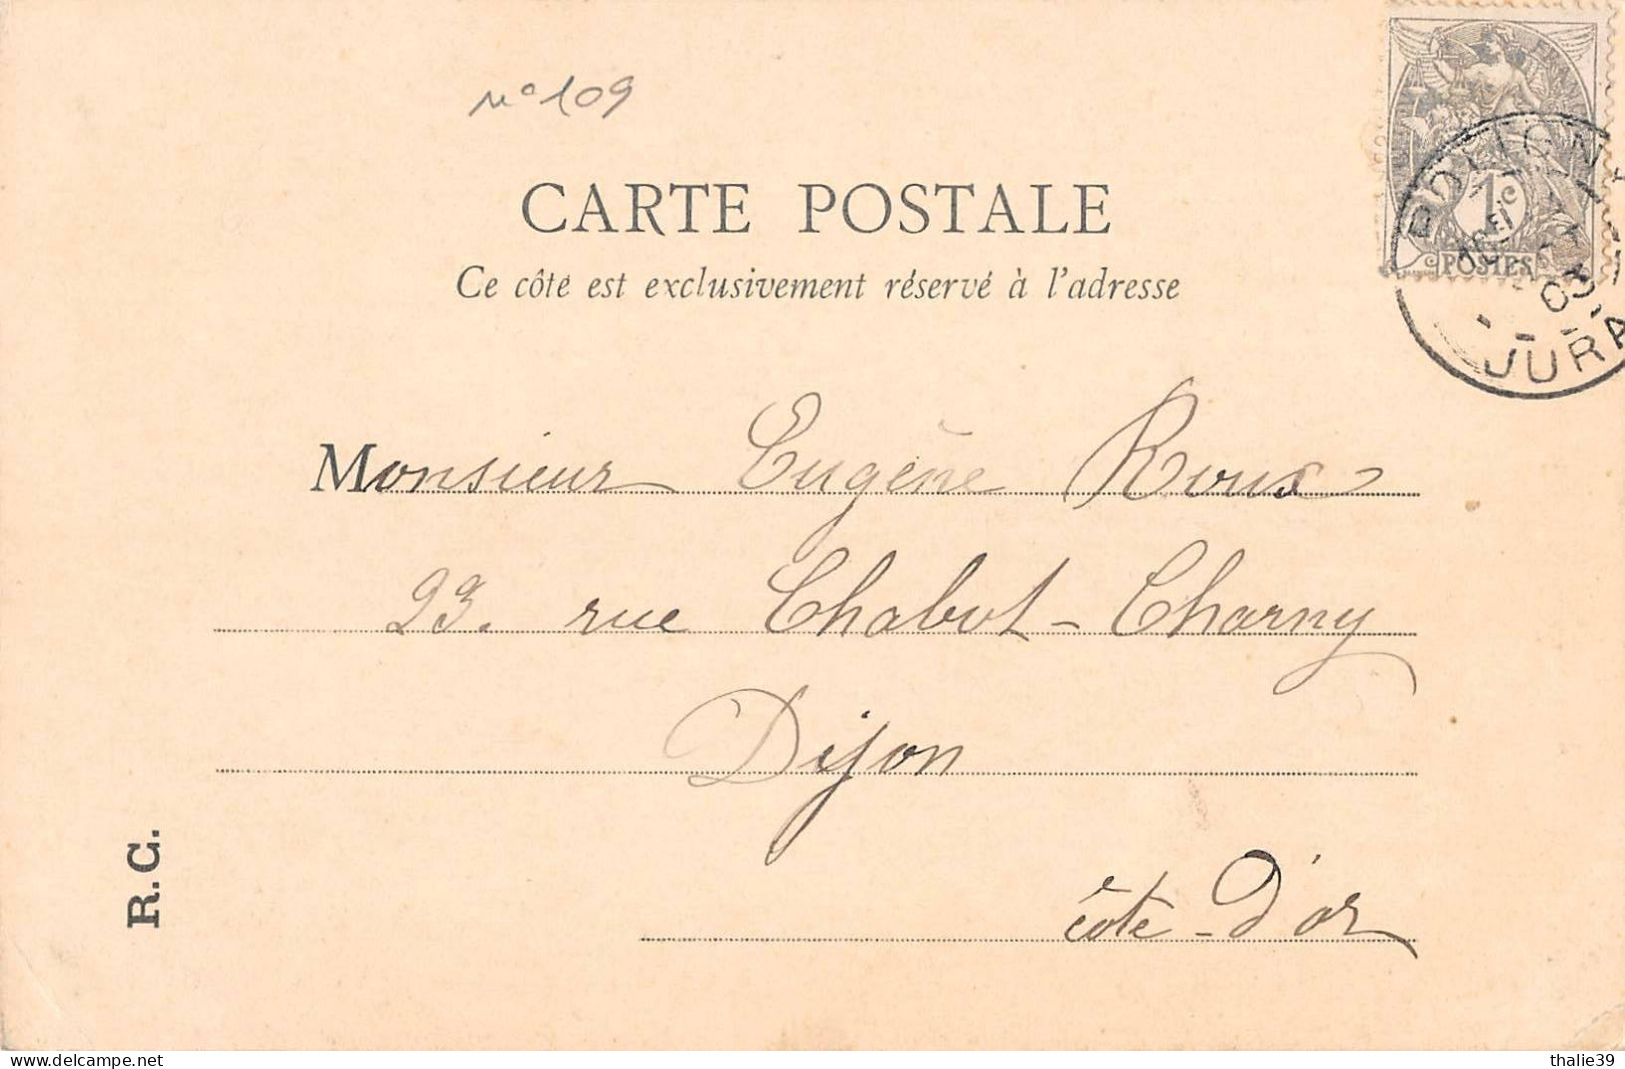 n° 109
CARTE POSTALE
Ce côté est exclusivement réservé à l'adresse
1c
POSTES
JURA
03
Monsieur Eugène Roux
23. rue Chabot-Charny
Dijon
côte-D'or
R.C.
delcampe.net
thalie39